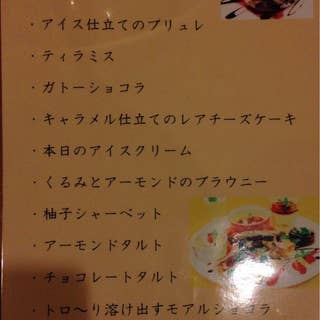 ・アイス仕立てのブリュレ
・ティラミス
・ガトーショコラ
・キャラメル仕立てのレアチーズケーキ
・本日のアイスクリーム
・くるみとアーモンドのブラウニー
・柚子シャーベット
・アーモンドタルト
・チョコレートタルト
・トロ～り溶け出すモアルショコラ